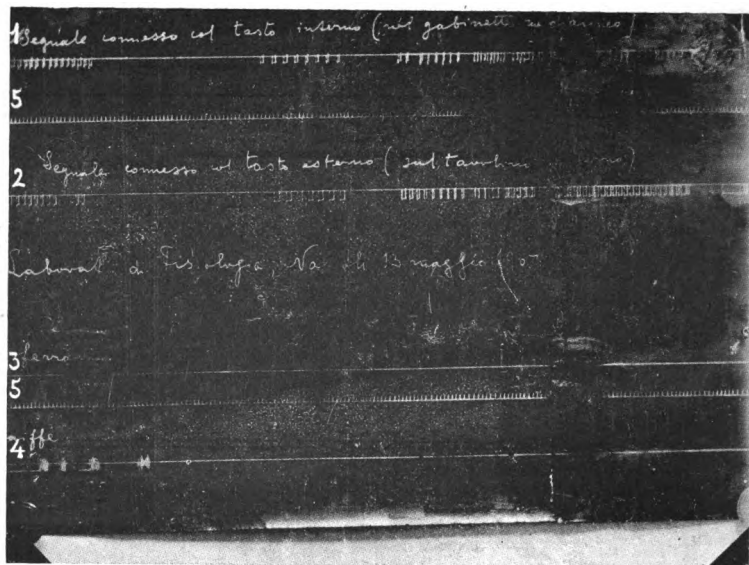 1 Segnale connesso col tasto interno (nel gabinetto
5
2 Segnale connesso col tasto esterno (sul tavolino
Laborat di Fisiologia, 13 maggio
3
5
4